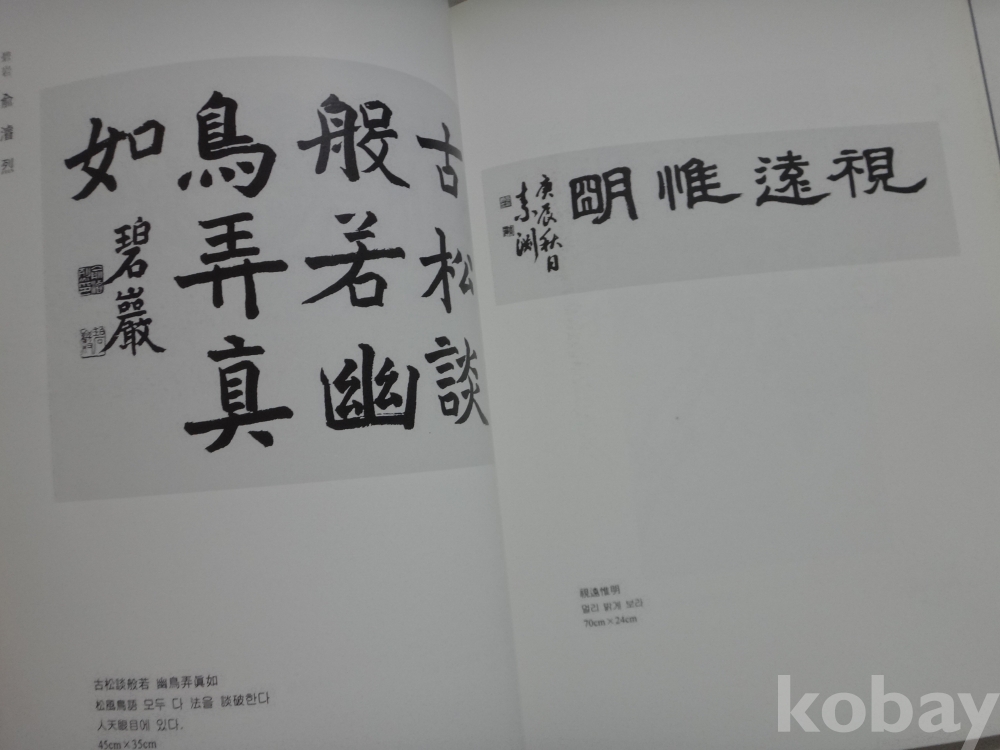 碧岩 兪濬烈
古松談
般若幽
鳥弄真
如
碧巖
古松談般若 幽鳥弄眞如
松風鳥語 모두 다 法을 談破한다
人天眼目에 있다.
45cm×35cm
視遠惟明
庚辰秋日
素淵
視遠惟明
멀리 밝게 보라
70cm×24cm
kobay